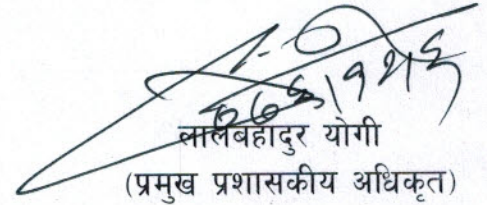 लालबहादुर योगी
(प्रमुख प्रशासकीय अधिकृत)